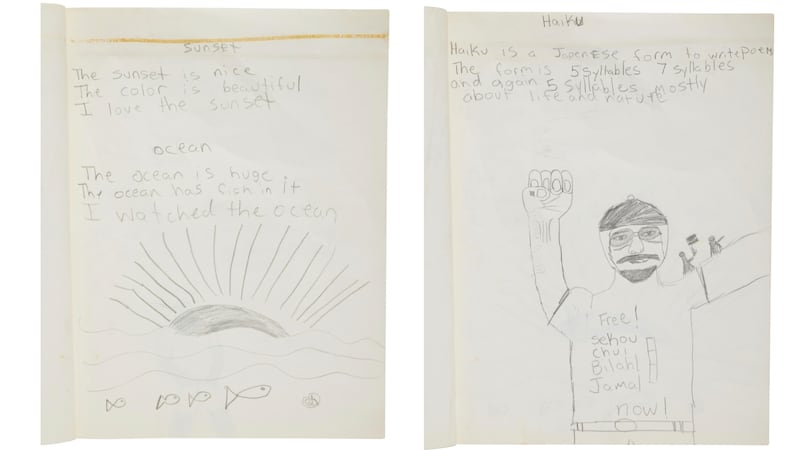 Sunset
The sunset is nice
The color is beautiful
I love the sunset
ocean
The ocean is huge
The ocean has fish in it
I watched the ocean
Haiku
Haiku is a Japenese form to write poem
The form is 5 syllables 7 syllables
and again 5 syllables mostly
about life and nature
Free!
sekou
chui
Bilahl
Jamal
now!